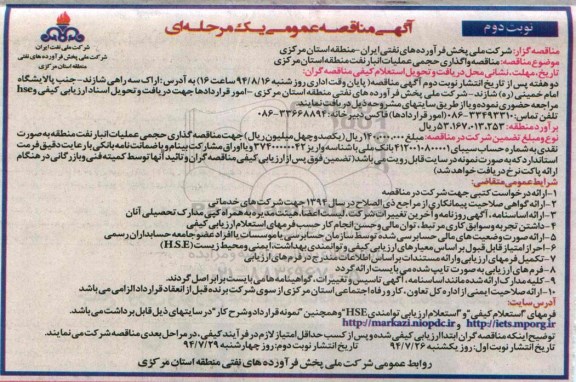 نوبت دوم
آگهی مناقصه عمومی یک مرحله‌ای
شرکت ملی نفت ایران
شرکت ملی پخش فرآورده های نفتی
منطقه استان مرکزی
مناقصه گزار: شرکت ملی پخش فرآورده های نفتی ایران -منطقه استان مرکزی
موضوع مناقصه: مناقصه واگذاری حجمی عملیات انبار نفت منطقه استان مرکزی
تاریخ، مهلت، نشانی محل دریافت و تحویل استعلام کیفی مناقصه گران:
دو هفته پس از تاریخ انتشار نوبت دوم آگهی مناقصه (پایان وقت اداری روز شنبه ۹۴/۸/۱۶ ساعت ۱۶) به آدرس: اراک سه راهی شازند- جنب پالایشگاه
امام خمینی (ره) شازند- شرکت ملی پخش فرآورده های نفتی منطقه استان مرکزی -امور قراردادها جهت دریافت و تحویل اسناد ارزیابی کیفی و hse
مراجعه حضوری نموده و یا از طریق سایتهای مشروحه ذیل دریافت نمایند.
تلفن تماس: ۳۳۴۹۳۳۱۰-۰۸۶ (امور قراردادها) فاکس دبیرخانه: ۳۳۶۶۸۸۹۴-۰۸۶
برآورد منطقه: ۵۳،۱۶۷،۰۱۳،۲۵۳ ریال
نوع و مبلغ تضمین شرکت در مناقصه: مبلغ ۱۴۰،۰۰۰،۰۰۰ ریال (یکصد و چهل میلیون ریال) جهت مناقصه گذاری حجمی عملیات انبار نفت منطقه به صورت
نقدی به شماره حساب سیبای ۴۱۲۰۰۱۰۸۰۰۰۱ بانک ملی با شناسه واریز ۳۷۴۰۰۰۰۰۴۲ و یا اوراق مشارکت بی نام و یا ضمانت نامه بانکی با رعایت دقیق فرمت
استاندارد که به صورت نمونه در سایت قابل رویت می باشد (تضمین فوق پس از ارزیابی کیفی مناقصه گران و تائید آنها توسط کمیته فنی و بازرگانی در هنگام
ارائه پاکت نرخ دریافت خواهد شد)
شرایط عمومی متقاضی:
۱-ارائه درخواست کتبی جهت شرکت در مناقصه
۲-ارائه گواهی صلاحیت پیمانکاری از مراجع ذی الصلاح در سال ۱۳۹۴ جهت شرکت های خدماتی
۳-ارائه اساسنامه، آگهی روزنامه و آخرین تغییرات شرکت، لیست اعضاء هیئت مدیره به همراه کپی مدارک تحصیلی آنان
۴-داشتن تجربه و سوابق کاری مرتبط، توان مالی و حسن انجام کار حسب فرمهای استعلام ارزیابی کیفی
۵-ارائه صورت وضعیت های مالی حسابرسی شده توسط سازمان حسابرسی یا موسسات یا افراد عضو جامعه حسابداران رسمی
۶-احراز امتیاز قابل قبول بر اساس معیارهای ارزیابی کیفی و توانمندی بهداشت، ایمنی و محیط زیست (H.S.E)
۷-تکمیل فرمهای ارزیابی و ارائه مستندات بر اساس اطلاعات مندرج در فرم های ارزیابی
۸-فرم های ارزیابی به صورت تایپ شده می بایست ارائه گردد
۹-کلیه مدارک ارائه شده مانند اساسنامه، آگهی تاسیس و تغییرات، گواهینامه ها می بایست برابر اصل گردند.
۱۰-ارائه صلاحیت ایمنی از اداره کل تعاون، کار و رفاه اجتماعی استان مرکزی از سوی شرکت برنده قبل از انعقاد قرارداد الزامی می باشد
آدرس سایت:
فرمهای "استعلام کیفی" و "استعلام ارزیابی توانمندی HSE" و همچنین "نمونه قرارداد و شرح کار" در سایتهای ذیل قابل برداشت می باشد.
http://iets.mporg.ir و http://markazi.niopdc.ir
توضیح اینکه مناقصه گران ابتدا ارزیابی کیفی شده و پس از کسب حداقل امتیاز لازم در فرآیند کیفی، در مراحل بعدی مناقصه شرکت می نمایند.
تاریخ انتشار نوبت اول: روز یکشنبه ۹۴/۷/۲۶ تاریخ انتشار نوبت دوم: روز چهارشنبه ۹۴/۷/۲۹
روابط عمومی شرکت ملی پخش فرآورده های نفتی منطقه استان مرکزی